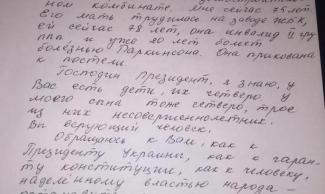 ном комбинате. Мне сейчас 75 лет.
Его мать трудилась на заводе ЖБК,
ей сейчас 78 лет, она инвалид II гру
ппы и уже 20 лет болеет
болезнью Паркинсона. Она прикована
к постели.
Господин Президент, я знаю, у
Вас есть дети, их четверо, у
моего сына тоже четверо, трое
из них несовершеннолетних.
Вы верующий человек.
Обращаюсь к Вам, как к
Президенту Украины, как к гаран-
ту конституции, как к человеку,
наделенному властью народа –